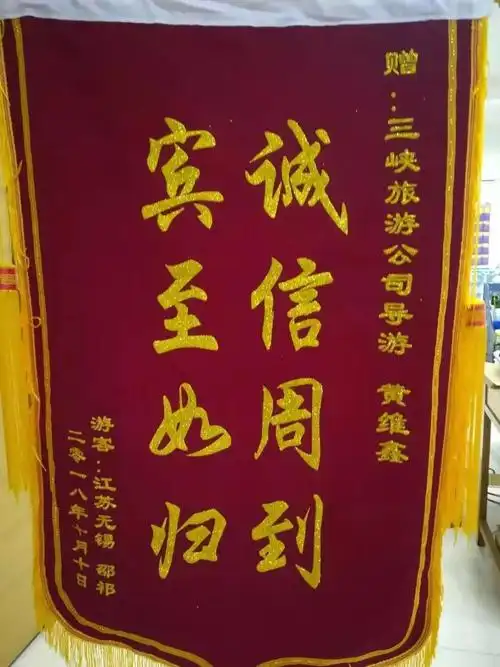 赠：三峡旅游公司导游 黄维鑫
诚信周到
宾至如归
游客：江苏无锡 邵祁
二零一八年十月十日